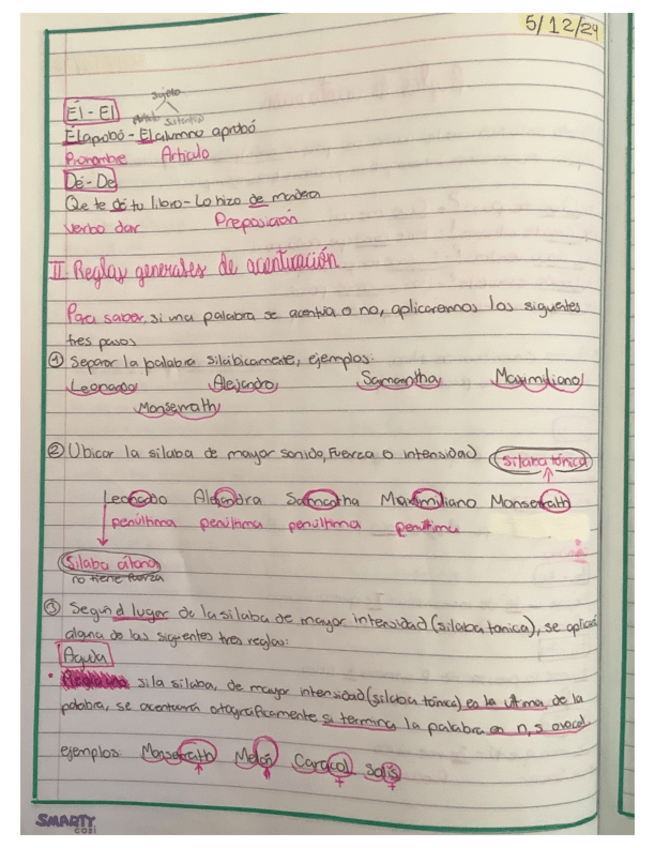 5/12/24
sujeto
Él-El
Él aprobó - El alumno aprobó
Pronombre Artículo
Dé-De
Que te dé tu libro - Lo hizo de madera
verbo dar Preposición
II Reglas generales de acentuación
Para saber, si una palabra se acentúa o no, aplicaremos los siguientes
tres pasos
① Separar la palabra silábicamente, ejemplos:
Leonardo Alejandra Samantha Maximiliano
Monserrath
② Ubicar la sílaba de mayor sonido, fuerza o intensidad sílaba tónica
Leonardo Alejandra Samantha Maximiliano Monserrath
penúltima penúltima penúltima penúltima
Sílaba átona
no tiene fuerza
③ Según d lugar de la sílaba de mayor intensidad (sílaba tonica), se aplicará
alguna de las siguientes tres reglas:
Aguda
• si la sílaba, de mayor intensidad (sílaba tónica) es la última de la
palabra, se acentuará ortográficamente si termina la palabra en n, s o vocal
ejemplos: Monserrath Melón Caracol Solís
SMARTY
cosi